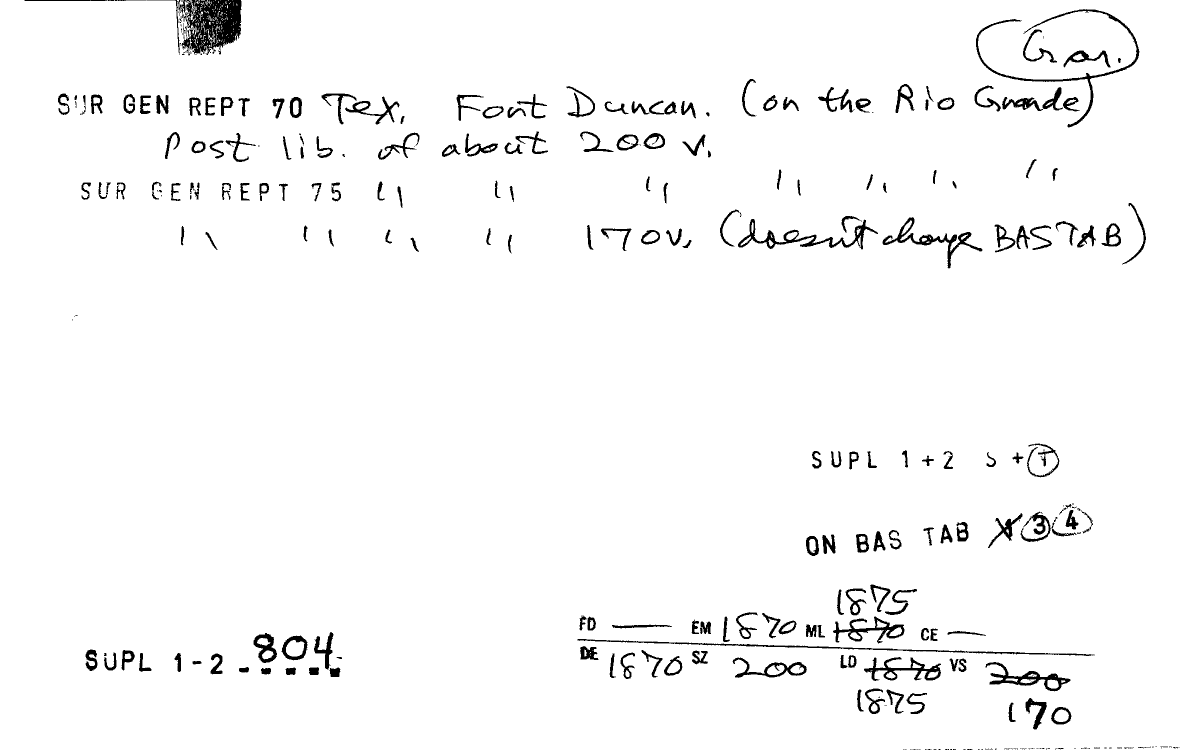 Gran.
SUR GEN REPT 70 Tex. Font Duncan. (on the Rio Grande)
Post lib. of about 200 v.
SUR GEN REPT 75 " " " " " " "
" " " " 170v. (doesn't change BAS TAB)
SUPL 1+2 S + T
ON BAS TAB 3 4
1875
FD — EM 1870 ML 1870 CE —
DE 1870 SZ 200 LD 1870 VS 200
1875 170
SUPL 1-2 804